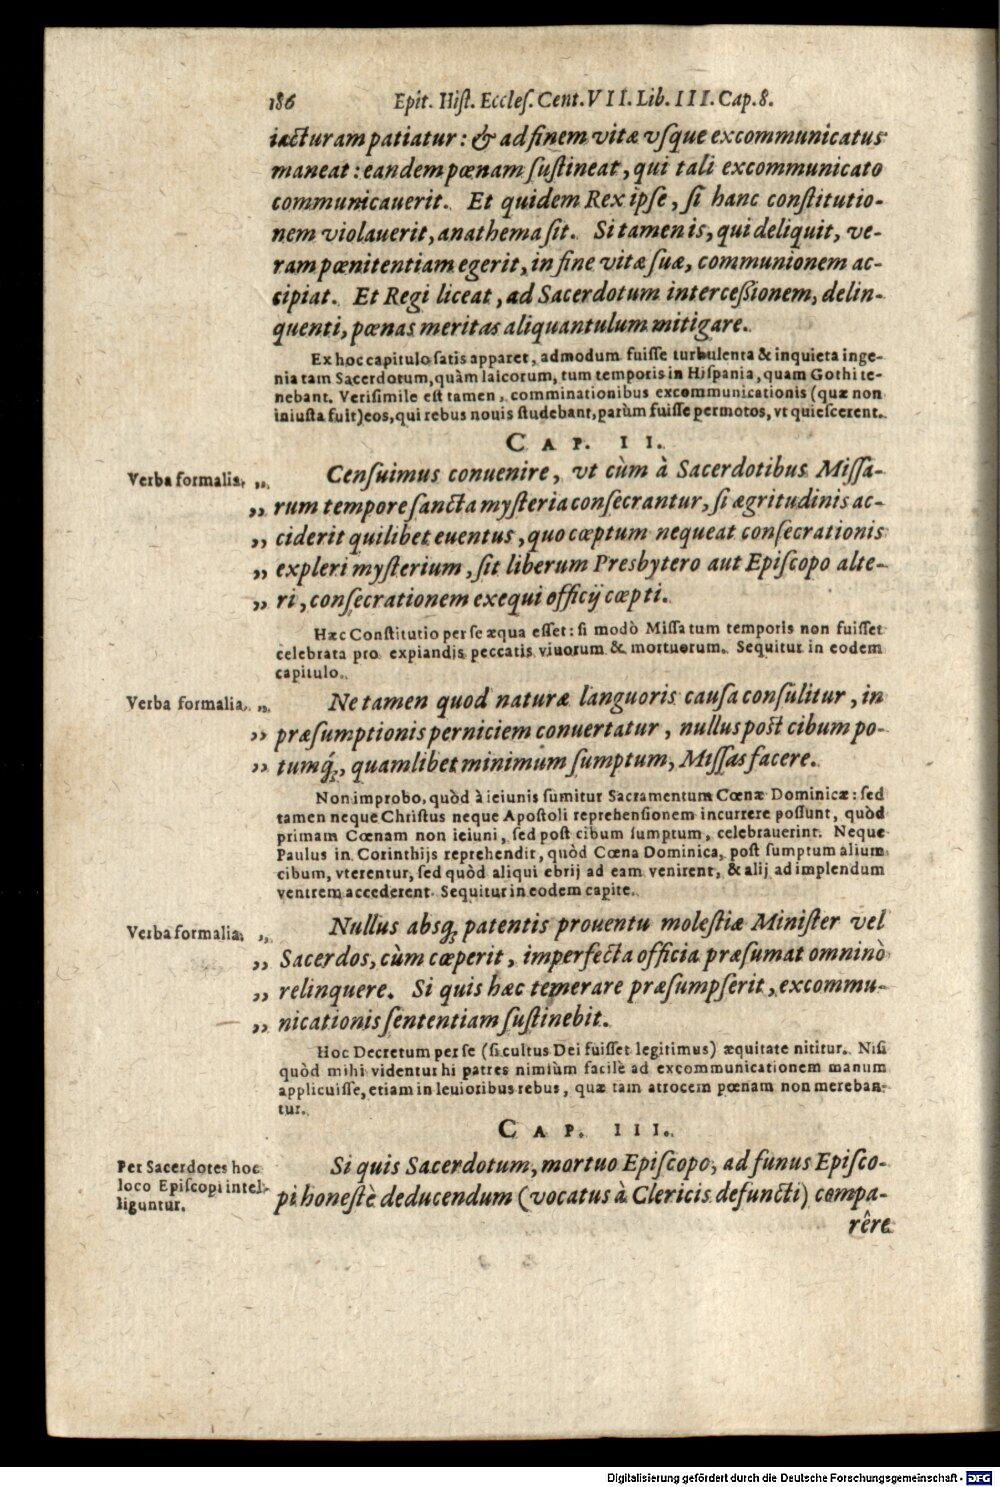 186 Epit. Hiſt. Eccleſ. Cent. VII. Lib. III. Cap. 8.
iacturam patiatur: & ad finem vitæ vſque excommunicatus
maneat: eandem pœnam ſuſtineat, qui tali excommunicato
communicauerit. Et quidem Rex ipſe, ſi hanc conſtitutio-
nem violauerit, anathema ſit. Si tamen is, qui deliquit, ve-
ram pœnitentiam egerit, in fine vitæ ſuæ, communionem ac-
cipiat. Et Regi liceat, ad Sacerdotum interceßionem, delin-
quenti, pœnas meritas aliquantulum mitigare.
Ex hoc capitulo ſatis apparet, admodum fuiſſe turbulenta & inquieta inge-
nia tam Sacerdotum, quàm laicorum, tum temporis in Hiſpania, quam Gothi te-
nebant. Veriſimile eſt tamen, comminationibus excommunicationis (quæ non
iniuſta fuit) eos, qui rebus nouis ſtudebant, parùm fuiſſe permotos, vt quieſcerent.
CAP. II.
Verba formalia. „ Cenſuimus conuenire, vt cùm à Sacerdotibus Miſſa-
„ rum tempore ſancta myſteria conſecrantur, ſi ægritudinis ac-
„ ciderit quilibet euentus, quo cœptum nequeat conſecrationis
„ expleri myſterium, ſit liberum Presbytero aut Epiſcopo alte-
„ ri, conſecrationem exequi officij cœpti.
Hæc Conſtitutio per ſe æqua eſſet: ſi modò Miſſa tum temporis non fuiſſet
celebrata pro expiandis peccatis viuorum & mortuorum. Sequitur in eodem
capitulo.
Verba formalia. „ Ne tamen quod naturæ languoris cauſa conſulitur, in
„ præſumptionis perniciem conuertatur, nullus poſt cibum po-
„ tumq́;, quamlibet minimum ſumptum, Miſſas facere.
Non improbo, quòd à ieiunis ſumitur Sacramentum Cœnæ Dominicæ: ſed
tamen neque Chriſtus neque Apoſtoli reprehenſionem incurrere poſſunt, quòd
primam Cœnam non ieiuni, ſed poſt cibum ſumptum, celebrauerint. Neque
Paulus in Corinthijs reprehendit, quòd Cœna Dominica, poſt ſumptum alium
cibum, vterentur, ſed quòd aliqui ebrij ad eam venirent, & alij ad implendum
ventrem accederent. Sequitur in eodem capite.
Verba formalia. „ Nullus absq; patentis prouentu moleſtiæ Miniſter vel
„ Sacerdos, cùm cœperit, imperfecta officia præſumat omninò
„ relinquere. Si quis hæc temerare præſumpſerit, excommu-
„ nicationis ſententiam ſuſtinebit.
Hoc Decretum per ſe (ſi cultus Dei fuiſſet legitimus) æquitate nititur. Niſi
quòd mihi videntur hi patres nimiùm facilè ad excommunicationem manum
applicuiſſe, etiam in leuioribus rebus, quæ tam atrocem pœnam non mereban-
tur.
CAP. III.
Per Sacerdotes hoc
loco Epiſcopi intel-
liguntur.
Si quis Sacerdotum, mortuo Epiſcopo, ad funus Epiſco-
pi honeſtè deducendum (vocatus à Clericis defuncti) compa-
rêre
Digitalisierung gefördert durch die Deutsche Forschungsgemeinschaft - DFG